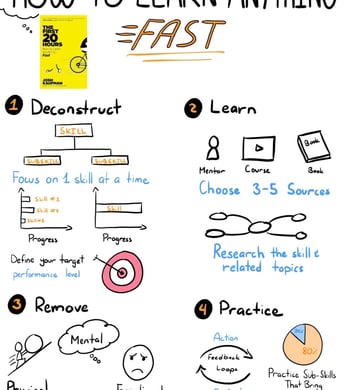 HOW TO LEARN ANYTHING
FAST
THE
FIRST
20
HOURS
JOSH
KAUFMAN
1 Deconstruct
SKILL
SUBSKILL SUBSKILL
Focus on 1 skill at a time
Skill
Progress Progress
Define your target
performance level
2 Learn
Book
Mentor Course Book
Choose 3-5 Sources
Research the skill &
related topics
3 Remove
Mental
Physical Emotional
4 Practice
Action
Feedback
Loops
20%
80%
Practice Sub-Skills
That Bring